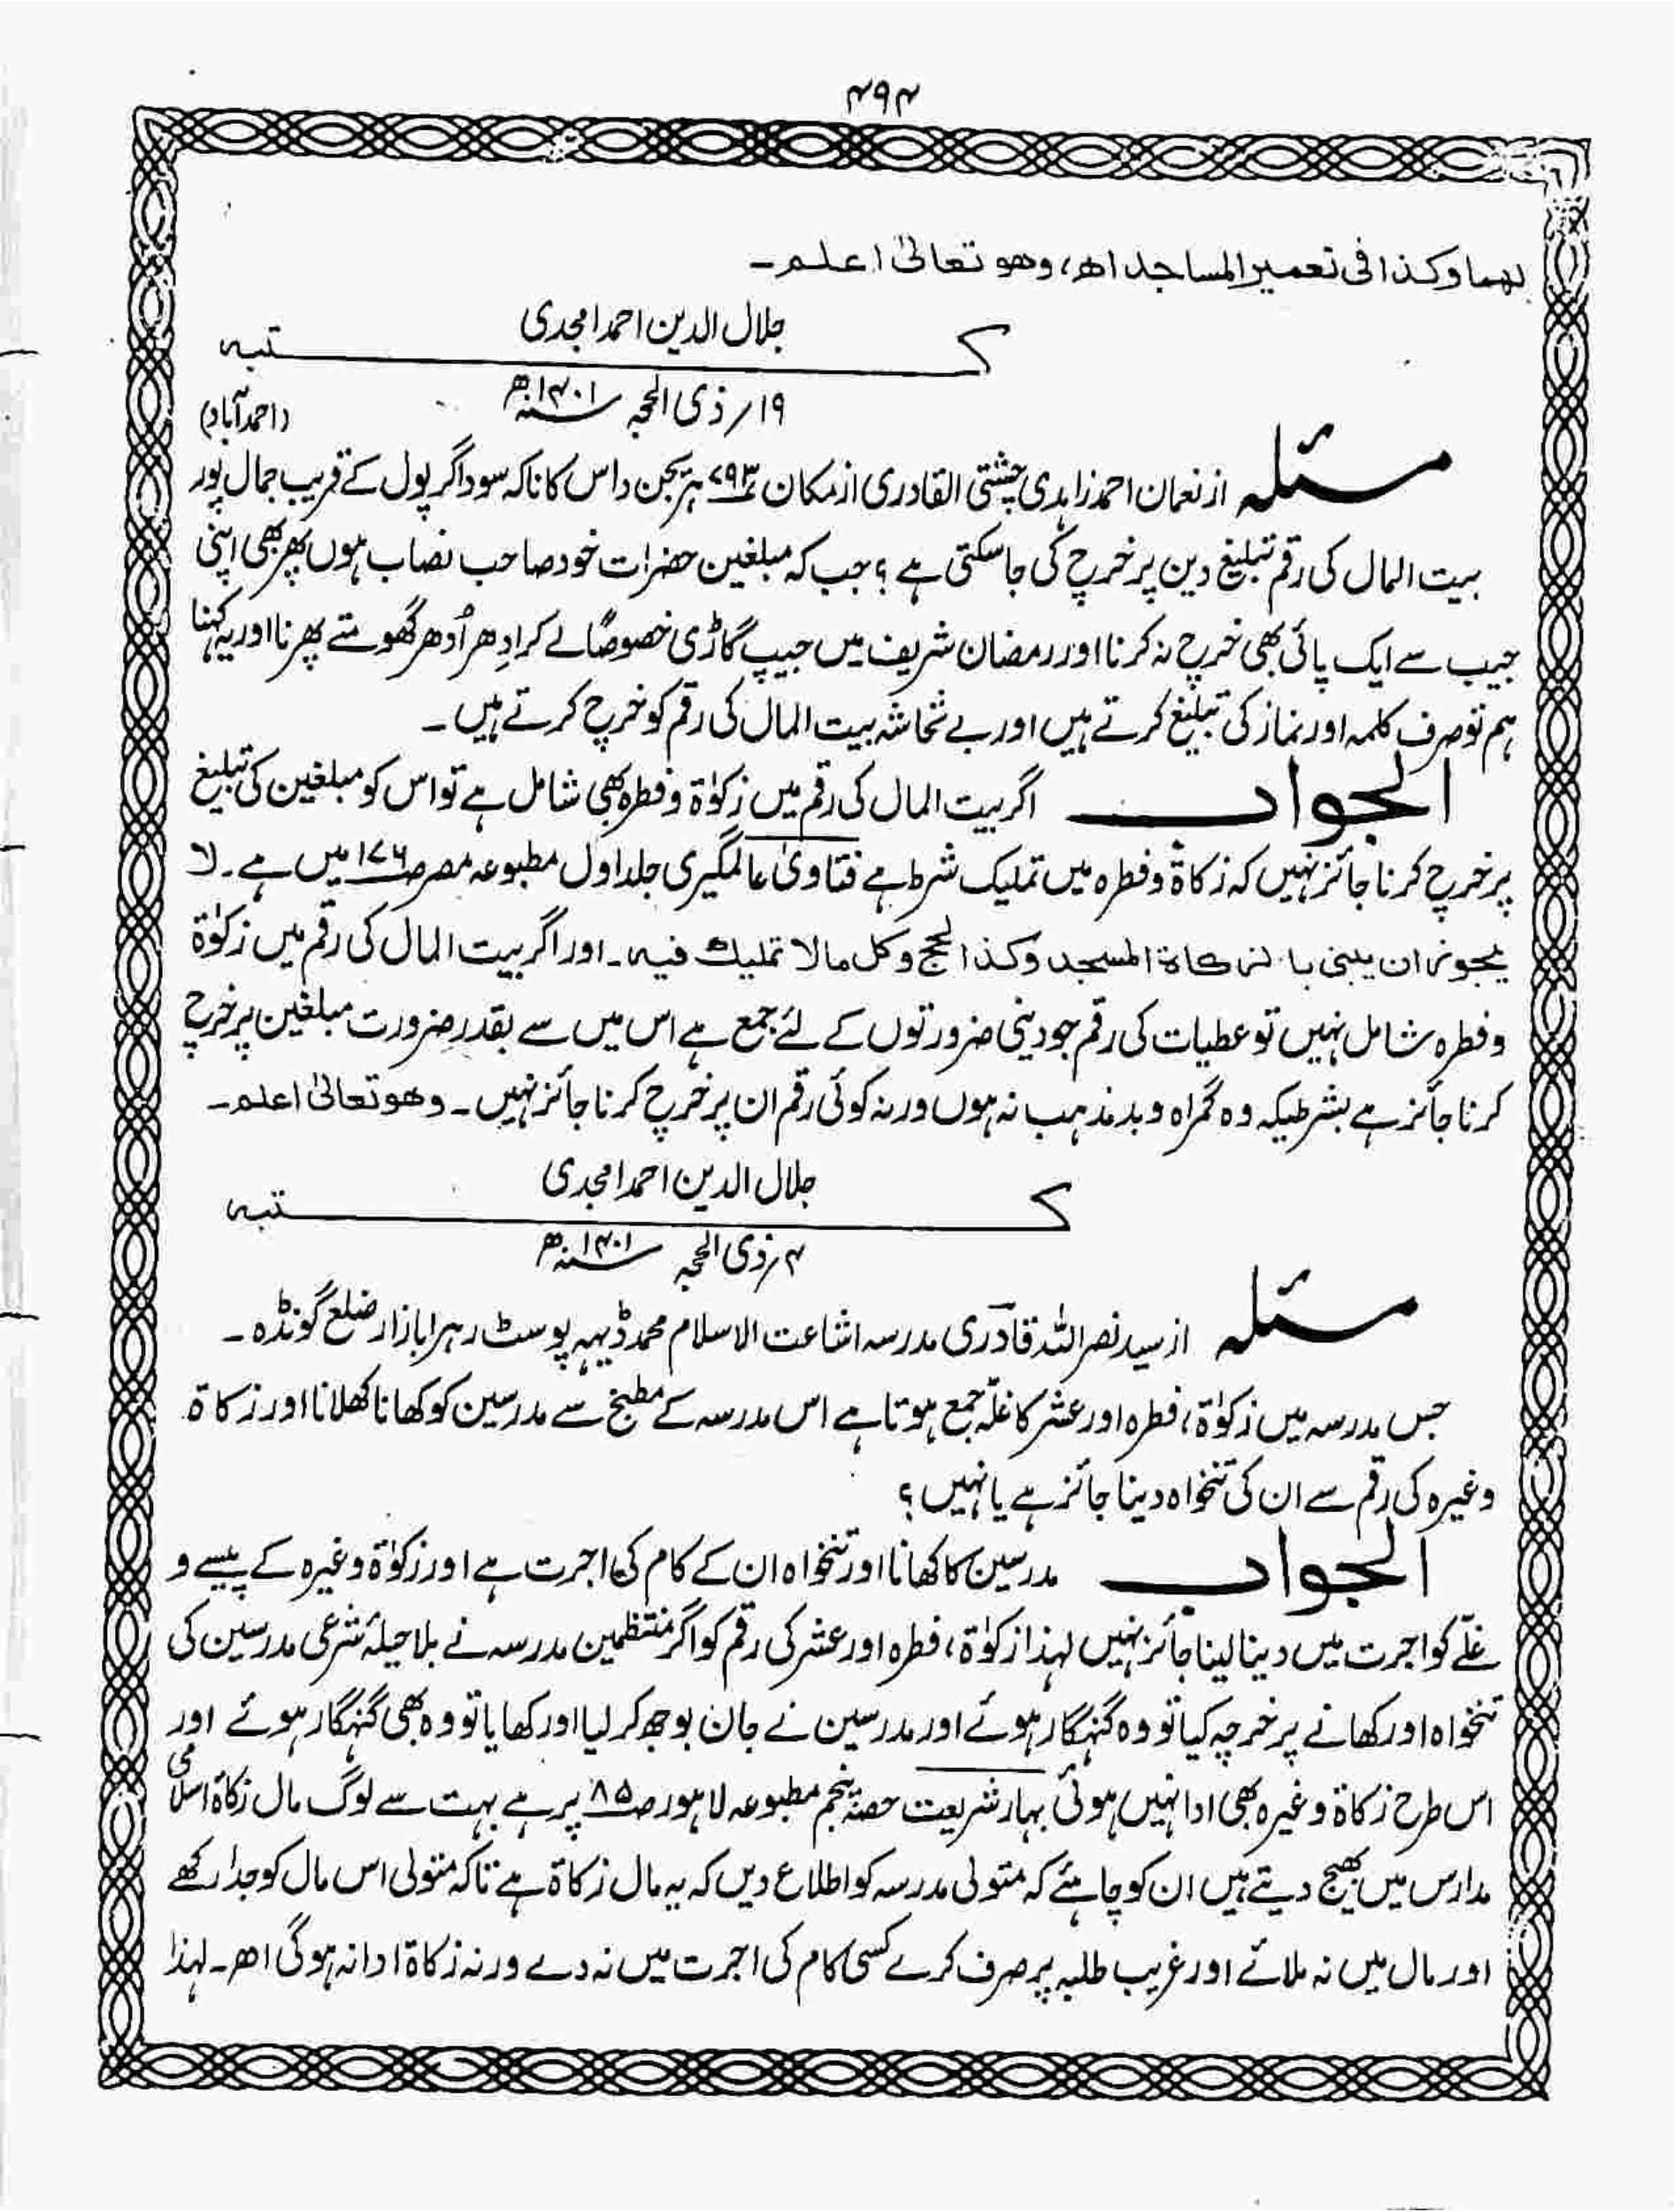 ۴۹۴
لہما وکذا فی تعمیر المساجد اھ، وھو تعالیٰ اعلم۔
جلال الدین احمد امجدی
کتبہ
۱۹/ ذی الحجہ ۱۴۰۱ھ
(احمدآباد)
مسئلہ از نعمان احمد زاہدی چشتی القادری از مکان ۷۹۳ ہریجن داس کا ناکہ سوداگر پول کے قریب جمال پور
بیت المال کی رقم تبلیغ دین پر خرچ کی جاسکتی ہے؟ جب کہ مبلغین حضرات خود صاحب نصاب ہوں پھر بھی اپنی
جیب سے ایک پائی بھی خرچ نہ کرنا اور رمضان شریف میں جیپ گاڑی خصوصًا لے کر ادھر اُدھر گھومتے پھرنا اور یہ کہنا
ہم تو صرف کلمہ اور نماز کی تبلیغ کرتے ہیں اور بے تحاشہ بیت المال کی رقم کو خرچ کرتے ہیں۔
الجواب اگر بیت المال کی رقم میں زکوٰۃ و فطرہ بھی شامل ہے تو اس کو مبلغین کی تبلیغ
پر خرچ کرنا جائز نہیں کہ زکاۃ و فطرہ میں تملیک شرط ہے فتاویٰ عالمگیری جلد اول مطبوعہ مصر ص ۱۷۶ میں ہے۔ لا
یجوز ان یبنی بالزکاۃ المسجد وکذا الحج وکل مالا تملیک فیہ۔ اور اگر بیت المال کی رقم میں زکوٰۃ
و فطرہ شامل نہیں تو عطیات کی رقم جو دینی ضرورتوں کے لئے جمع ہے اس میں سے بقدرِ ضرورت مبلغین پر خرچ
کرنا جائز ہے بشرطیکہ وہ گمراہ و بدمذہب نہ ہوں ورنہ کوئی رقم ان پر خرچ کرنا جائز نہیں۔ وھو تعالیٰ اعلم۔
جلال الدین احمد امجدی
کتبہ
۴/ ذی الحجہ ۱۴۰۱ھ
مسئلہ از سید نصر اللہ قادری مدرسہ اشاعت الاسلام محمد ڈیہہ پوسٹ رہرا بازار ضلع گونڈہ۔
جس مدرسہ میں زکوٰۃ، فطرہ اور عشر کا غلّہ جمع ہوتا ہے اس مدرسہ کے مطبخ سے مدرسین کو کھانا کھلانا اور زکاۃ
وغیرہ کی رقم سے ان کی تنخواہ دینا جائز ہے یا نہیں؟
الجواب مدرسین کا کھانا اور تنخواہ ان کے کام کی اجرت ہے اور زکوٰۃ وغیرہ کے پیسے و
غلّے کو اجرت میں دینا لینا جائز نہیں لہذا زکوٰۃ، فطرہ اور عشر کی رقم کو اگر منتظمین مدرسہ نے بلا حیلۂ شرعی مدرسین کی
تنخواہ اور کھانے پر خرچہ کیا تو وہ گنہگار ہوئے اور مدرسین نے جان بوجھ کر لیا اور کھایا تو وہ بھی گنہگار ہوئے اور
اس طرح زکاۃ وغیرہ بھی ادا نہیں ہوئی بہار شریعت حصۂ پنجم مطبوعہ لاہور ص ۸۵ پر ہے بہت سے لوگ مال زکاۃ اسلامی
مدارس میں بھیج دیتے ہیں ان کو چاہئے کہ متولی مدرسہ کو اطلاع دیں کہ یہ مال زکاۃ ہے تاکہ متولی اس مال کو جدا رکھے
اور مال میں نہ ملائے اور غریب طلبہ پر صرف کرے کسی کام کی اجرت میں نہ دے ورنہ زکاۃ ادا نہ ہوگی اھ۔ لہذا